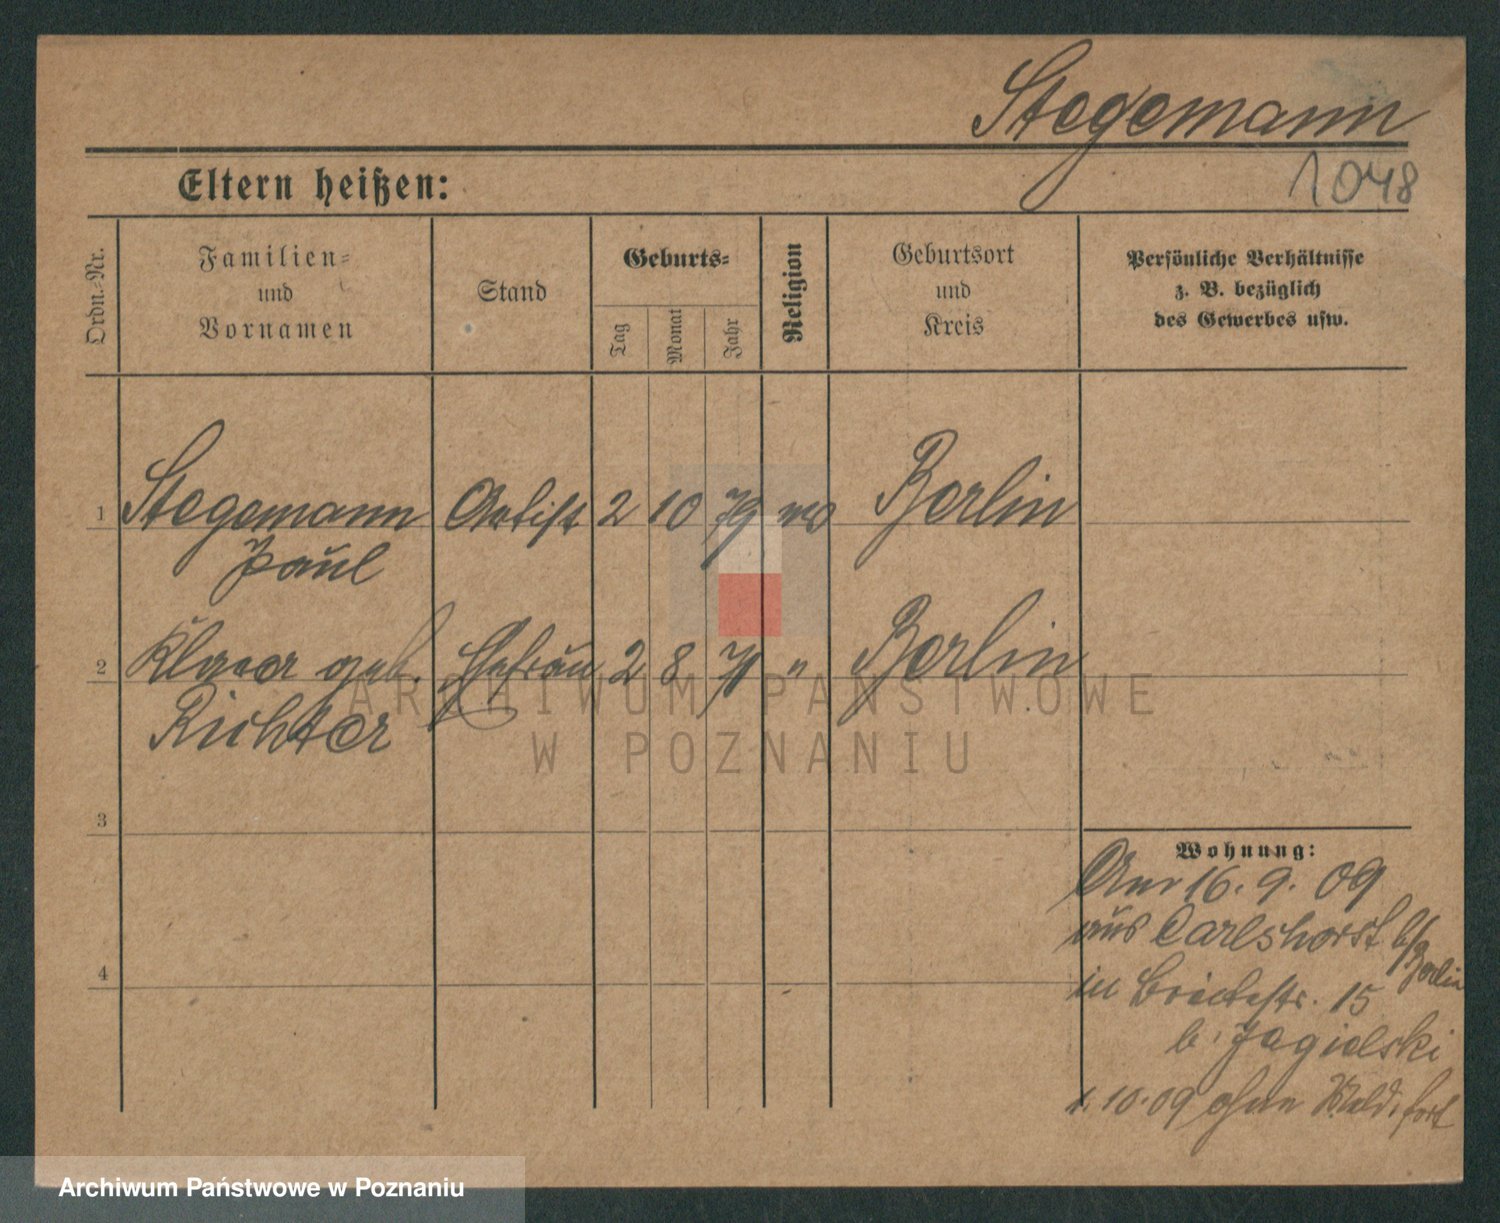 Stegemann
1048
Eltern heißen:
Ordn.-Nr.
Familien-
und
Vornamen
Stand
Geburts-
Tag
Monat
Jahr
Religion
Geburtsort
und
Kreis
Persönliche Verhältnisse
z. B. bezüglich
des Gewerbes usw.
1 Stegemann Artist 2 10 79 Berlin
Paul
2 geb. Ehefrau 2 8 71 " Berlin
Richter
3
4
Wohnung:
16. 9. 09
aus Carlshorst b/Berlin
in 15
b. Jagielski
1. 10. 09 ohne Meld. fort
ARCHIWUM PAŃSTWOWE
W POZNANIU
Archiwum Państwowe w Poznaniu